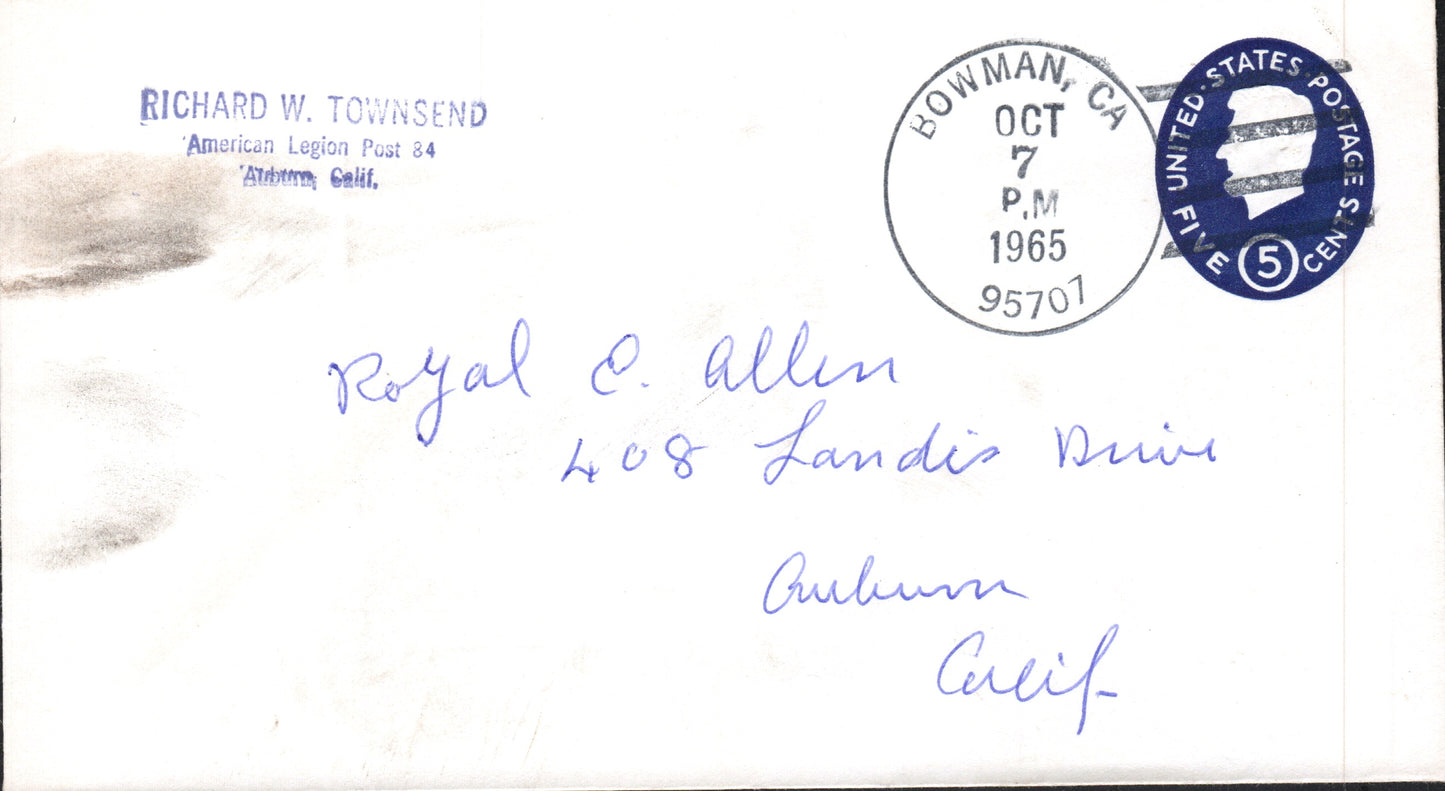 RICHARD W. TOWNSEND
American Legion Post 84
Auburn, Calif.
BOWMAN, CA
OCT
7
P.M
1965
95707
UNITED · STATES · POSTAGE
FIVE 5 CENTS
Royal E. Allen
408 Landis Drive
Auburn
Calif